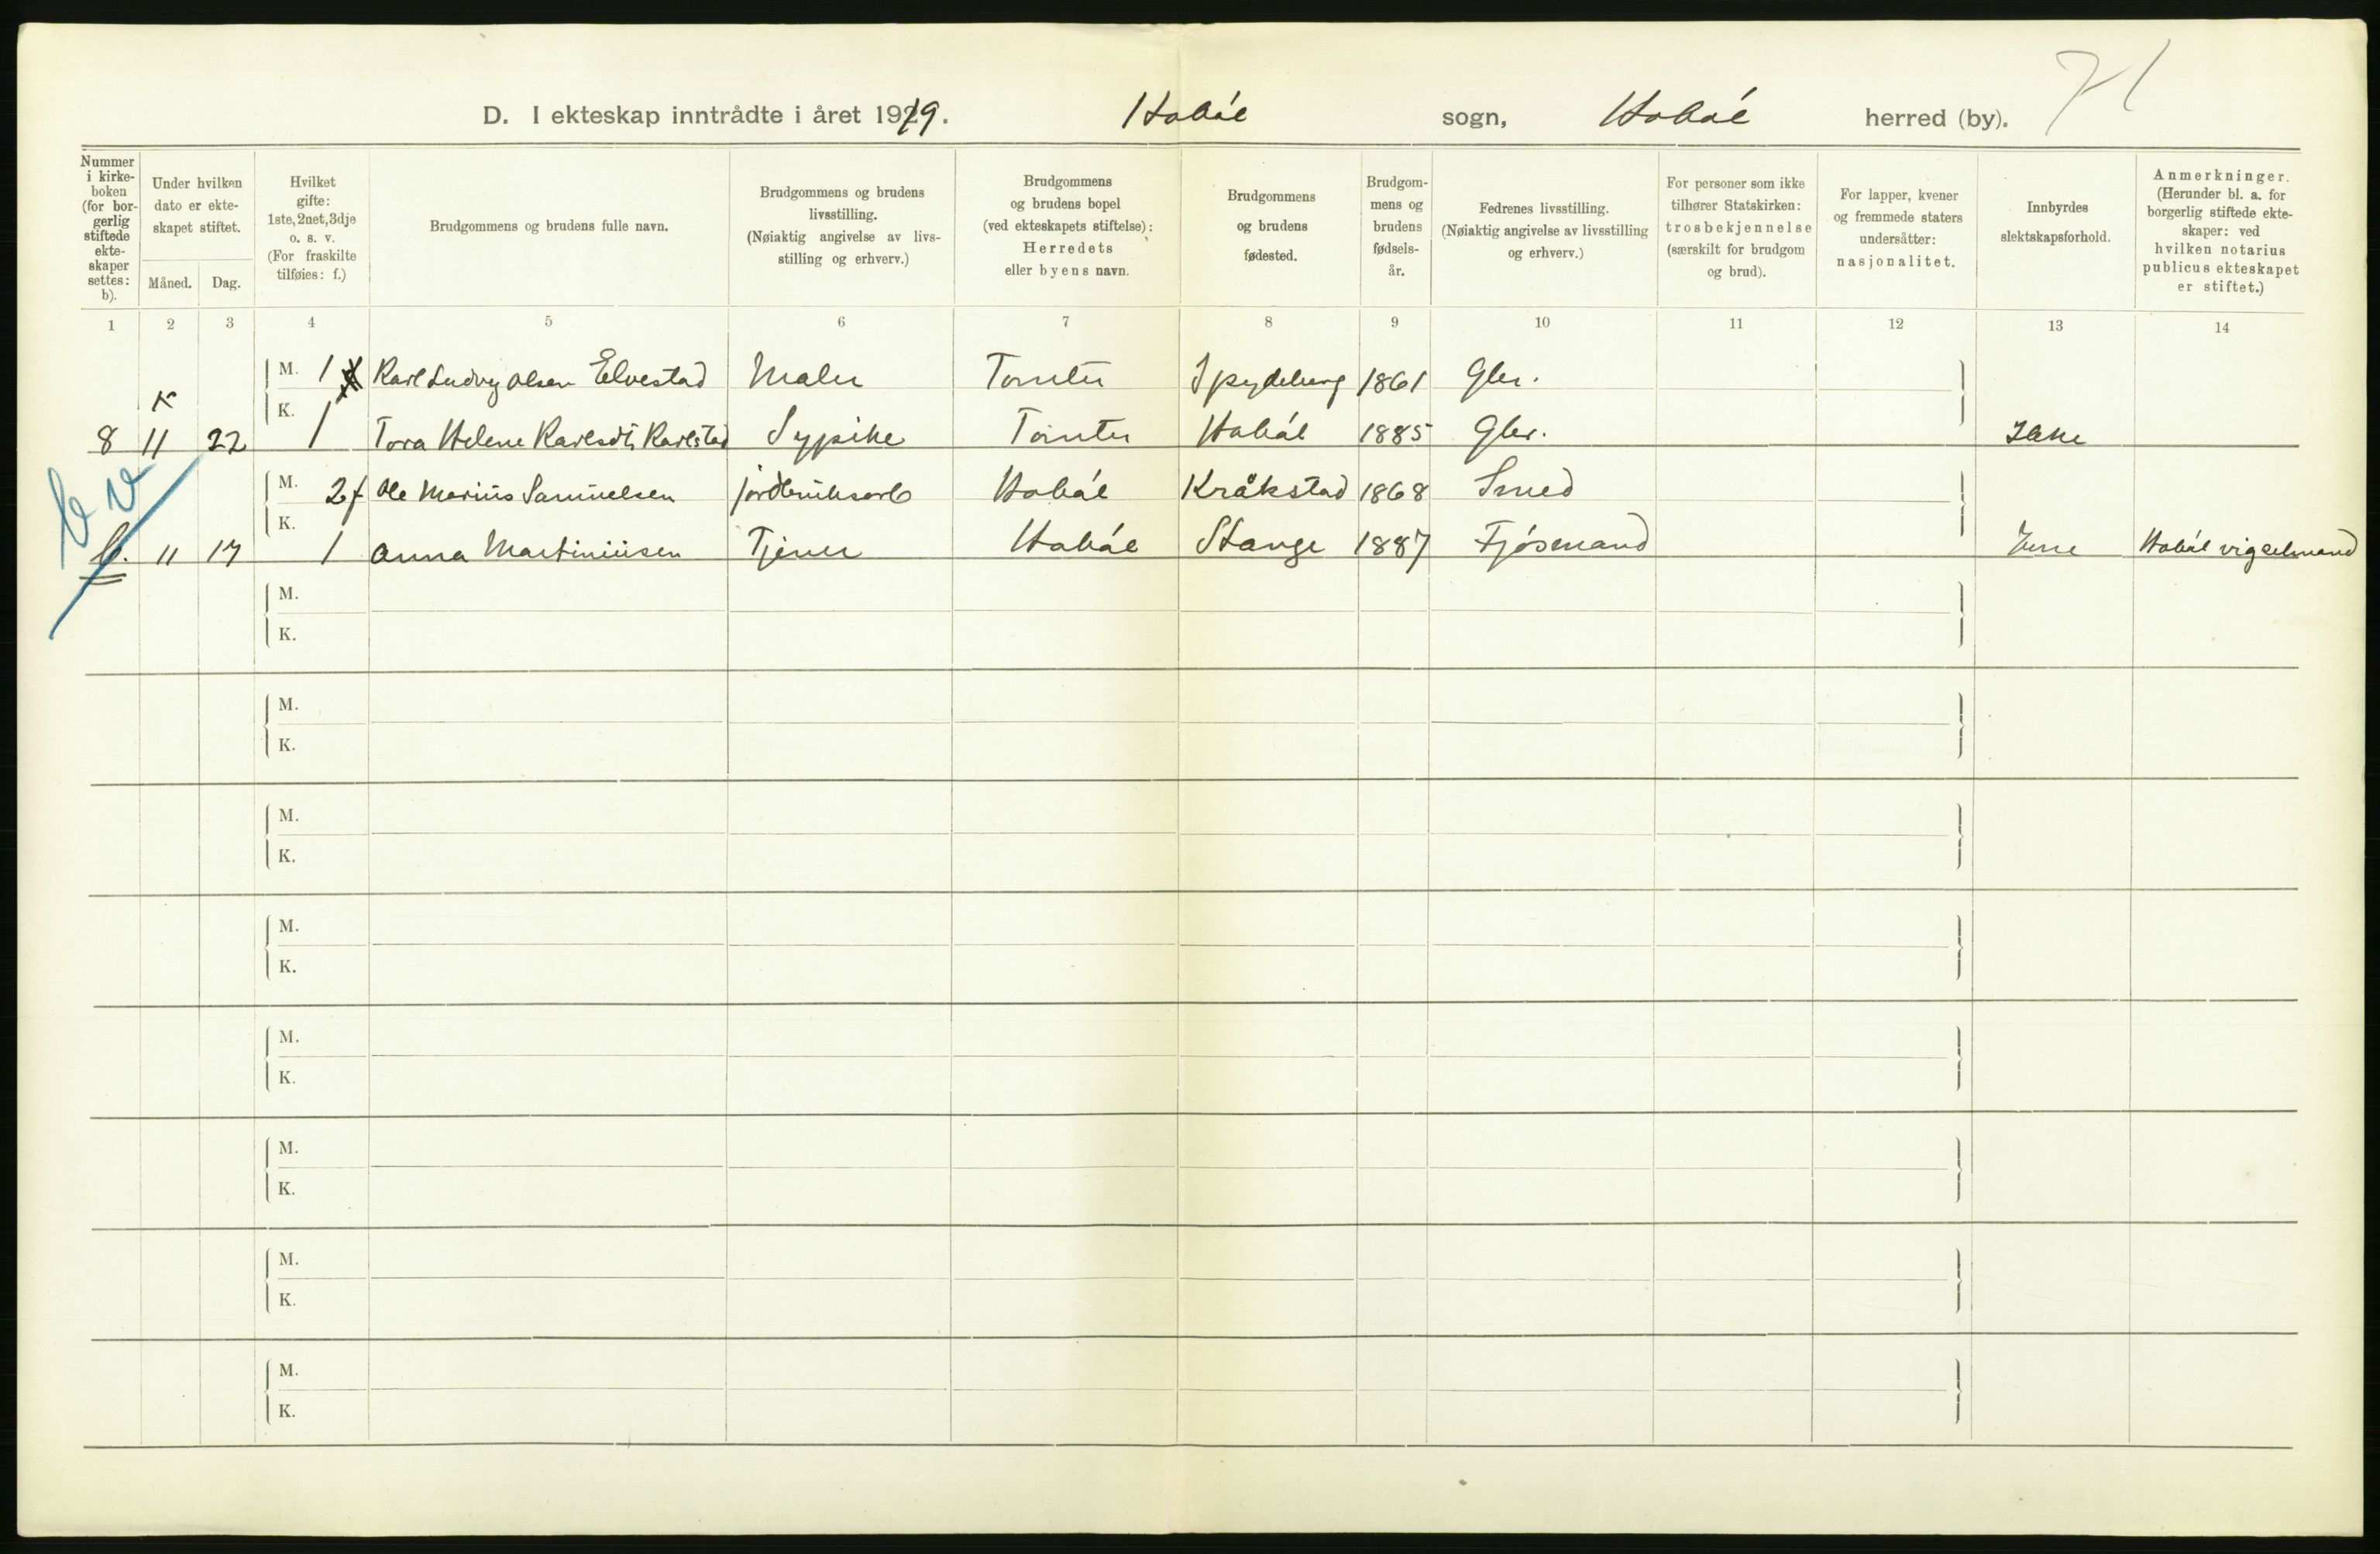 D. I ekteskap inntrådte i året 1919. Hobøl sogn, Hobøl herred (by). 71
Nummer i kirke-boken (for bor-gerlig stiftede ekte-skaper settes: b).
Under hvilken dato er ekte-skapet stiftet.
Måned. Dag.
Hvilket gifte: 1ste, 2net, 3dje o. s. v. (For fraskilte tilføies: f.)
Brudgommens og brudens fulle navn.
Brudgommens og brudens livsstilling. (Nøiaktig angivelse av livs-stilling og erhverv.)
Brudgommens og brudens bopel (ved ekteskapets stiftelse): Herredets eller byens navn.
Brudgommens og brudens fødested.
Brudgom-mens og brudens fødsels-år.
Fedrenes livsstilling. (Nøiaktig angivelse av livsstilling og erhverv.)
For personer som ikke tilhører Statskirken: trosbekjennelse (særskilt for brudgom og brud).
For lapper, kvener og fremmede staters undersåtter: nasjonalitet.
Innbyrdes slektskapsforhold.
Anmerkninger. (Herunder bl. a. for borgerlig stiftede ekte-skaper: ved hvilken notarius publicus ekteskapet er stiftet.)
1 2 3 4 5 6 7 8 9 10 11 12 13 14
M. 1 Karl Ludvig Olsen Elvestad Maler Tomter Spydeberg 1861 Gbr.
K
K. 8 11 22 1 Tora Helene Karlsdt. Karlstad Sypike Tomter Hobøl 1885 Gbr. Ikke
b v
M. 2f Ole Marius Samuelsen jordbruksarb Hobøl Kråkstad 1868 Smed
K. b. 11 17 1 Anna Martiniusen Tjener Hobøl Stange 1887 Fjøsmand Hobøl vigselmand
M.
K.
M.
K.
M.
K.
M.
K.
M.
K.
M.
K.
M.
K.
M.
K.